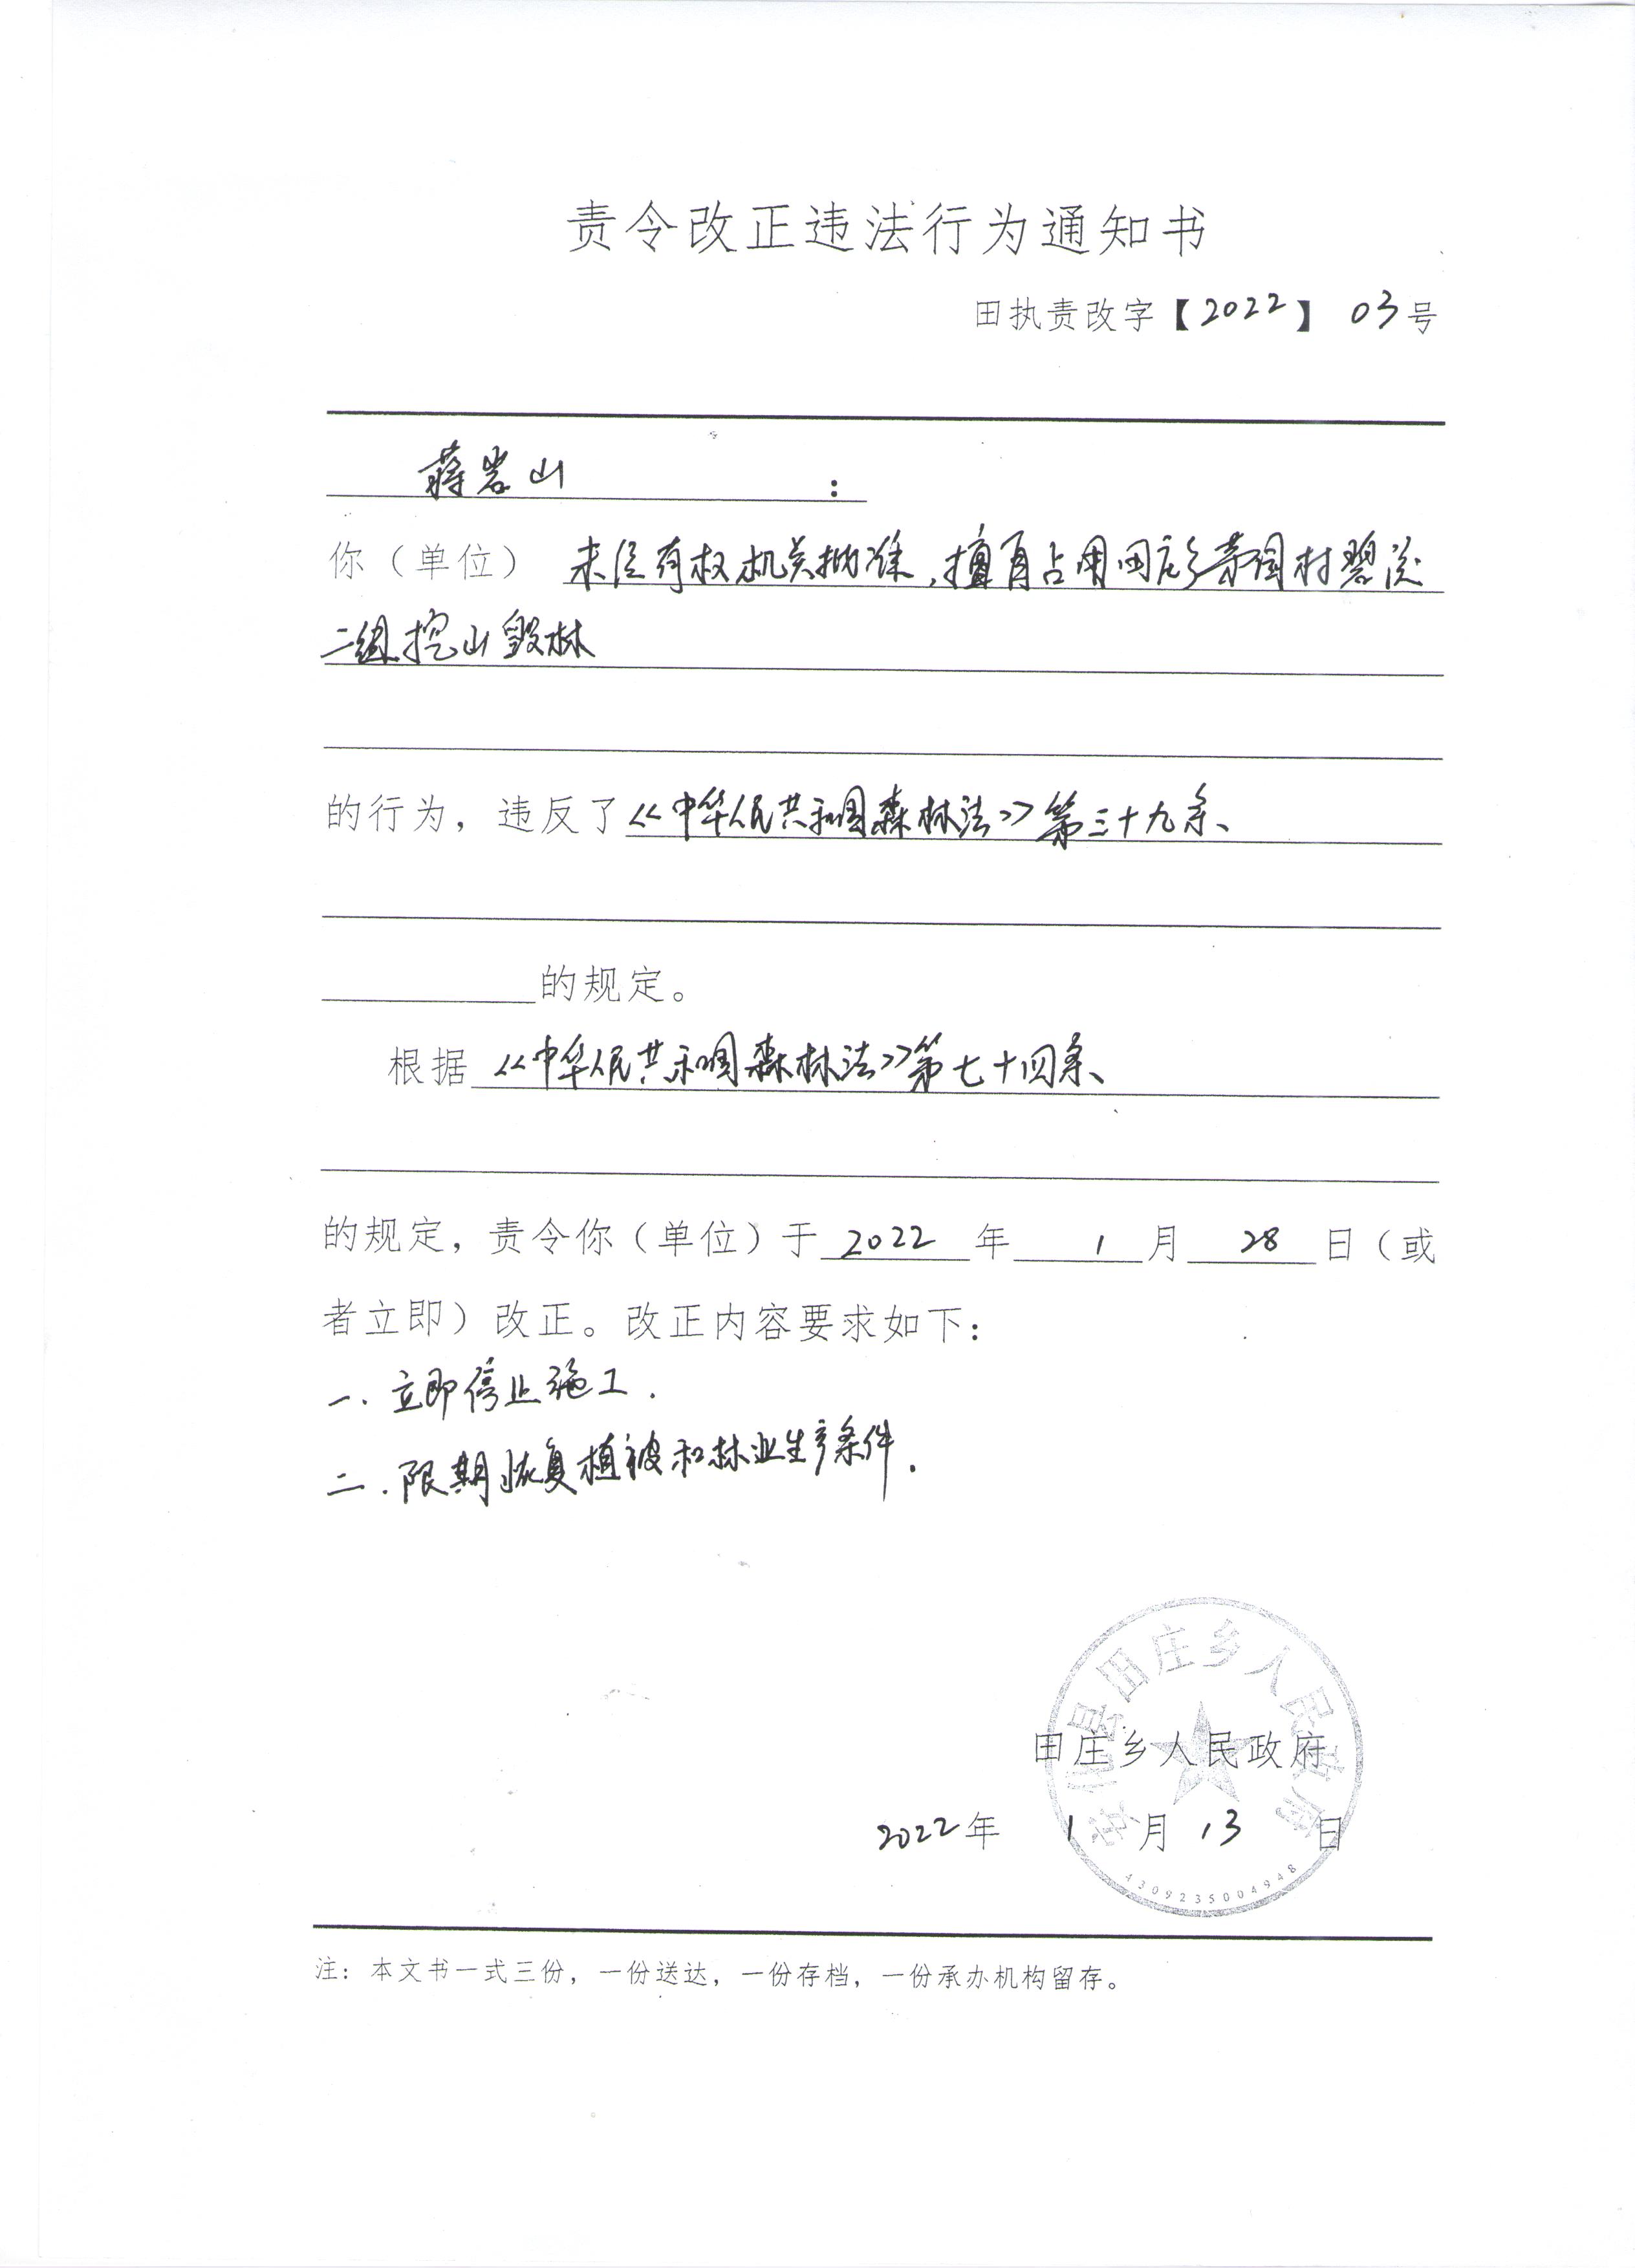 责令改正违法行为通知书
田执责改字【2022】 03号
蒋岩山 :
你（单位） 未经有权机关批准,擅自占用田庄乡 村碧溪
二组挖山毁林
的行为，违反了《中华人民共和国森林法》第三十九条、
的规定。
根据《中华人民共和国森林法》第七十四条、
的规定，责令你（单位）于 2022 年 1 月 28 日（或
者立即）改正。改正内容要求如下：
一.立即停止施工.
二.限期恢复植被和林业生产条件.
安化县田庄乡人民政府
田庄乡人民政府
2022年 1 月 13 日
4309235004948
注：本文书一式三份，一份送达，一份存档，一份承办机构留存。